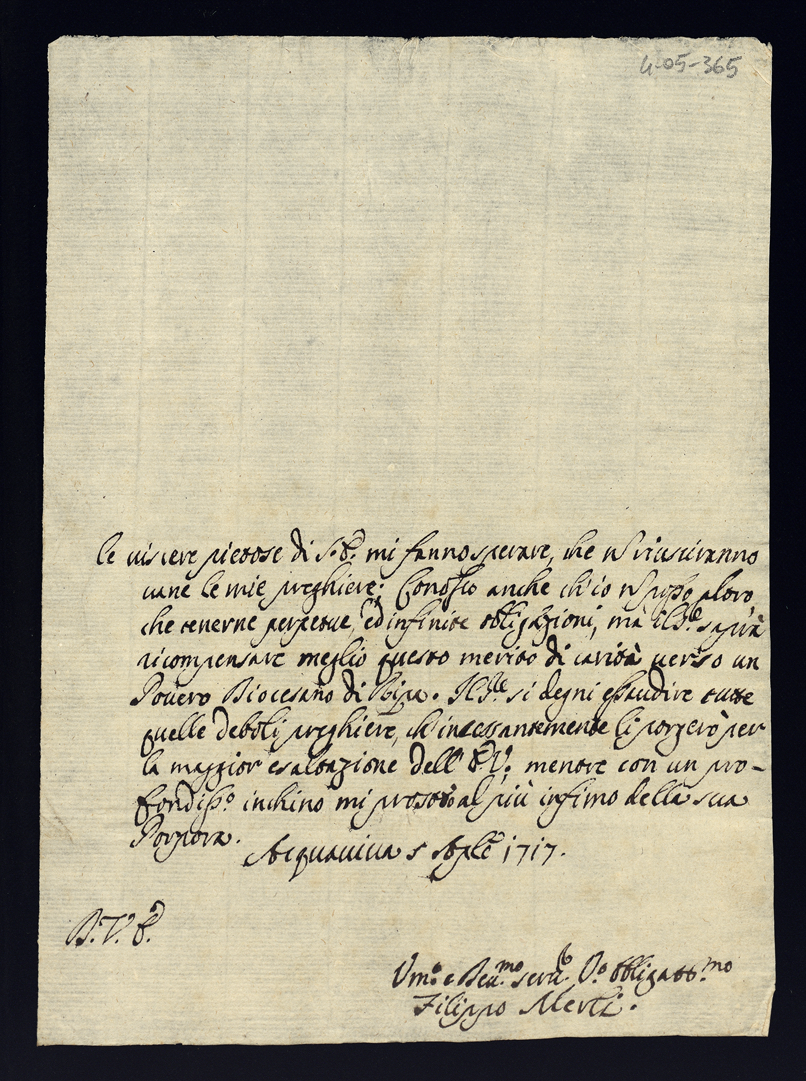 4-05-365
le viscere pietose di S. E. mi fanno sperare, che ñ riusciranno
vane le mie preghiere; Conosco anche ch'io ñ posso altro,
che tenerne perpetue, ed infinite obligazioni, mà il Sre. saprà
ricompensare meglio questo merito di carità verso un
Povero Diocesano di Ripa. Il Sre. si degni esaudire tutte
quelle deboli preghiere, ch'incessantemente li porgerò per
la maggior esaltazione dell' E. V., mentre con un pro-
fondiss.o inchino mi prostro al più infimo della sua
Porpora.
Acquaviva 5 Aple 1717.
D. V. E.
Um.o e Dev.mo serv. O. obligatt.mo
Filippo Merli.